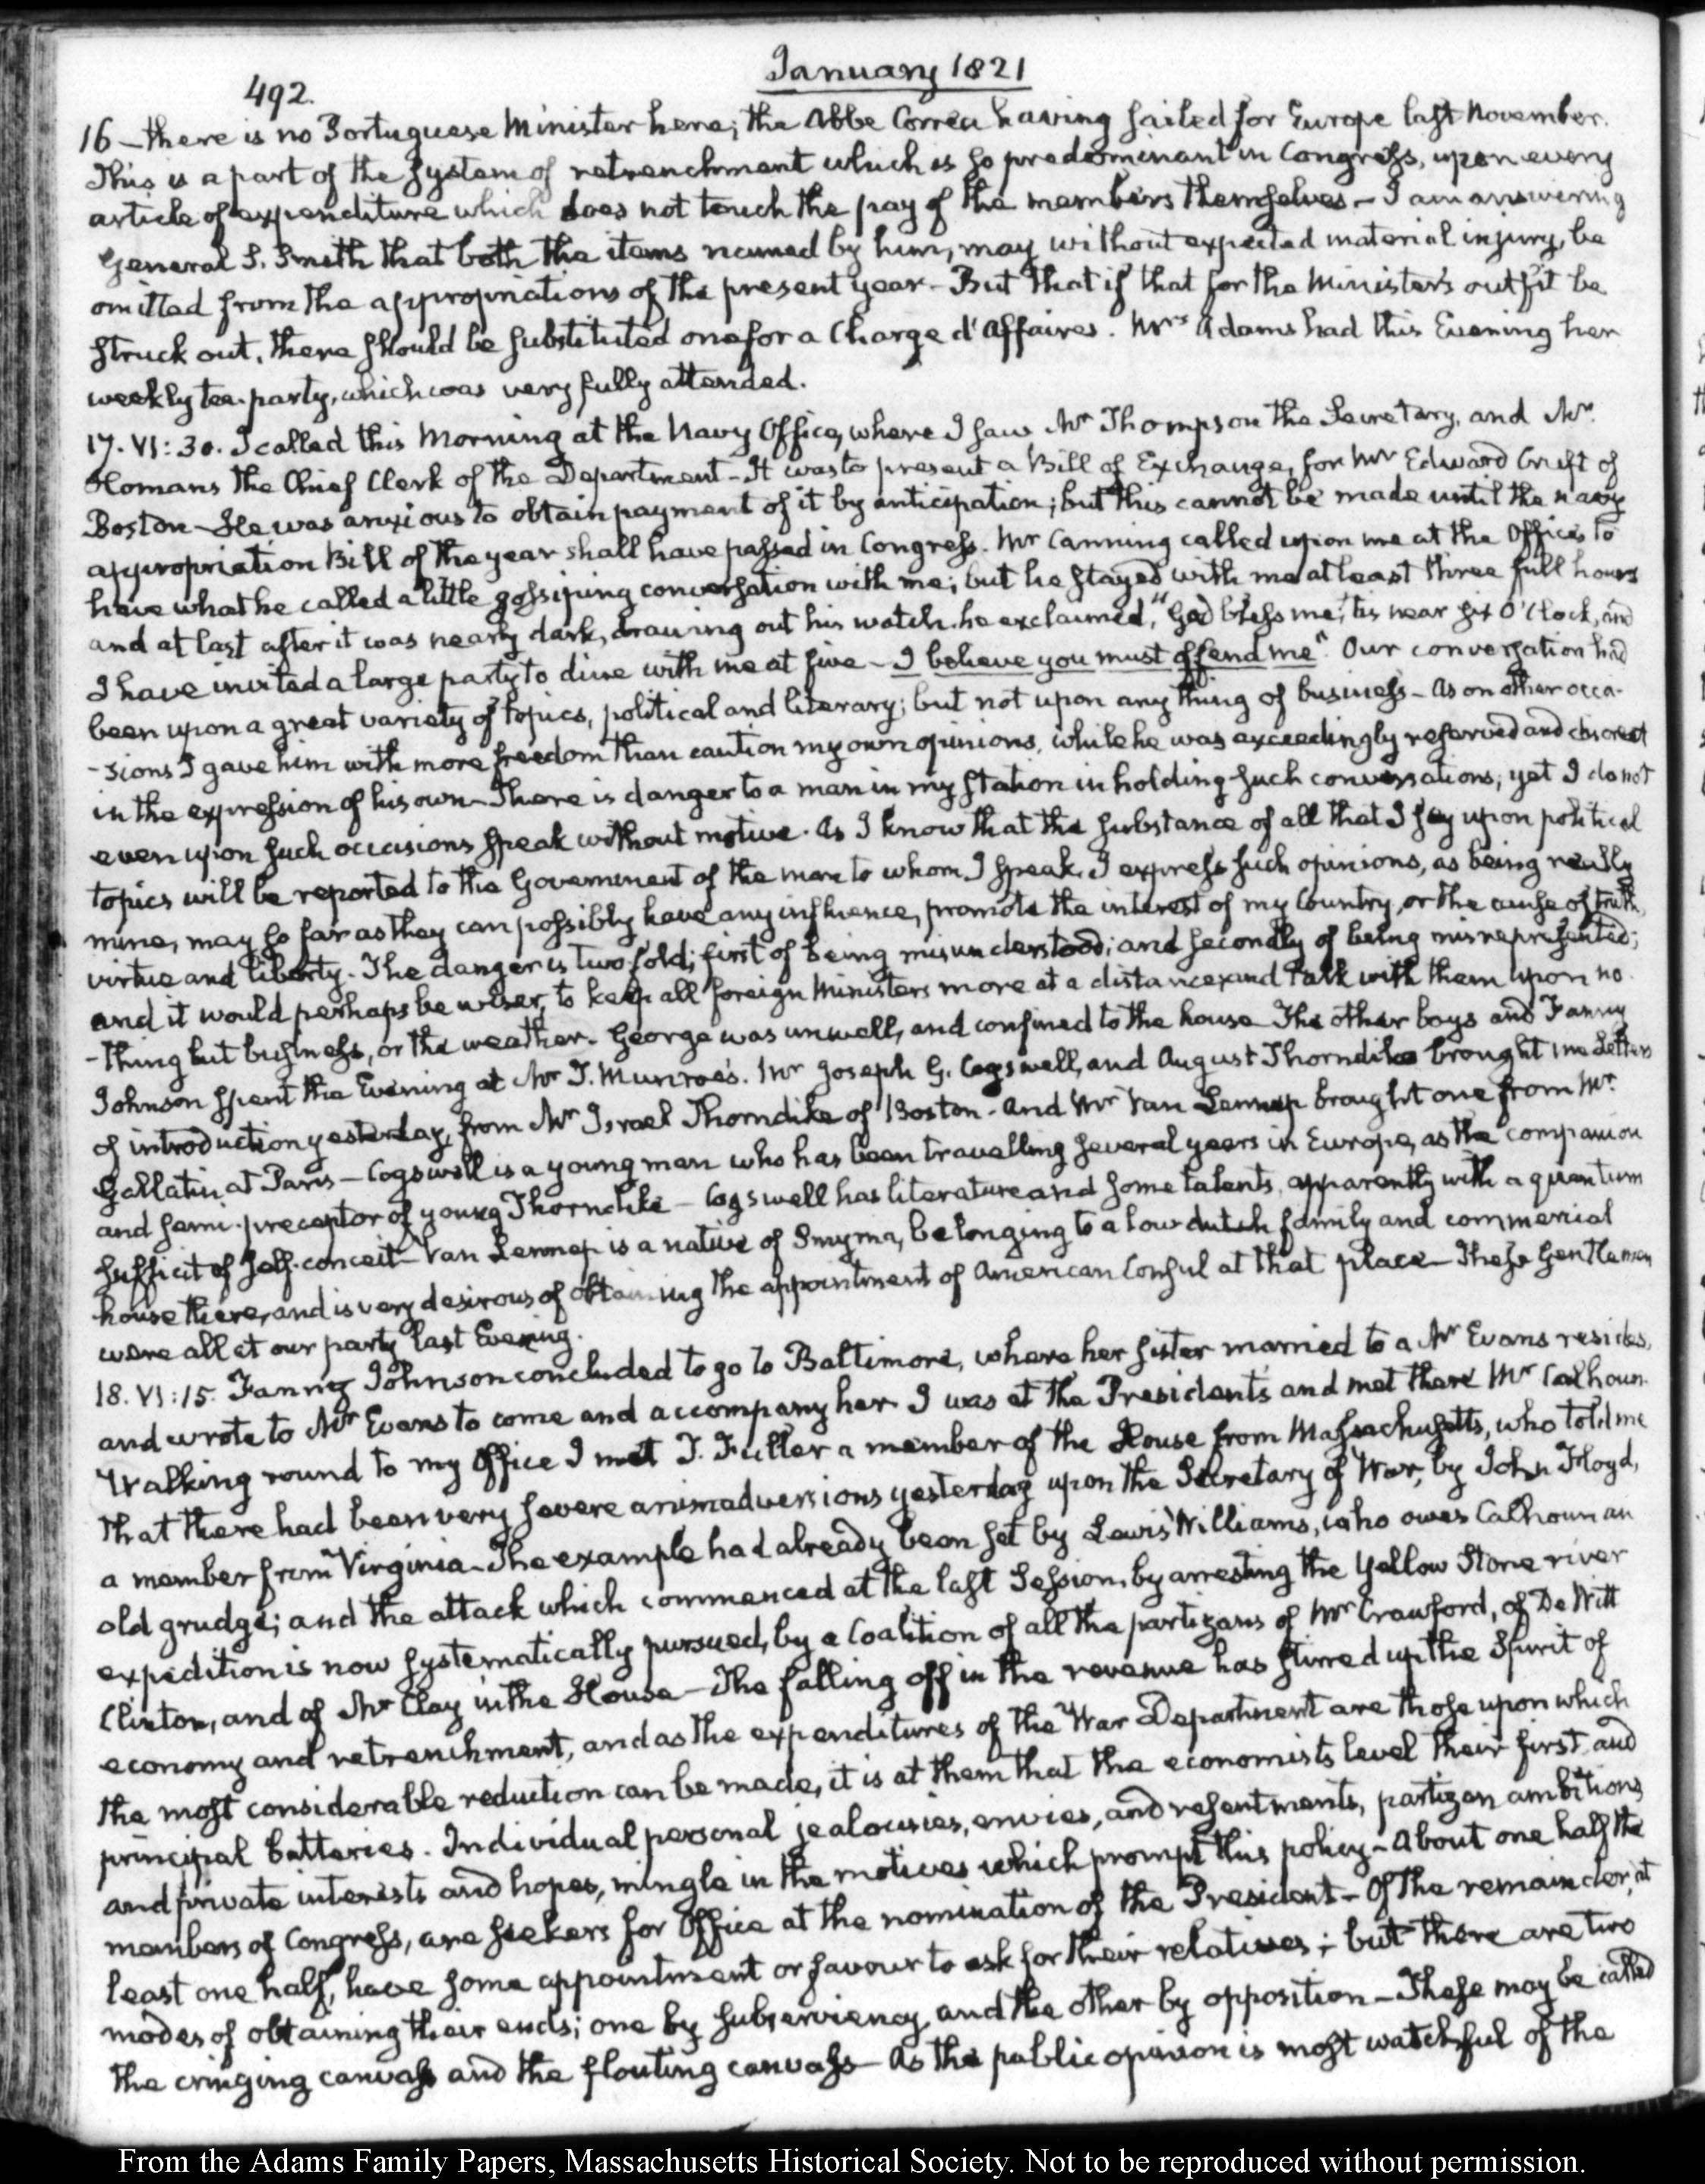 492.
January 1821
16 — there is no Portuguese Minister here; the Abbe Correa having sailed for Europe last November.
This is a part of the system of retrenchment which is so predominant in Congress, upon every
article of expenditure which does not touch the pay of the members themselves — I am answering
General S. Smith that both the items named by him, may without expected material injury, be
omitted from the appropriations of the present year — But that if that for the Minister's outfit be
struck out, there should be substituted one for a Charge d'Affaires. Mrs Adams had this Evening her
weekly tea-party, which was very fully attended.
17. VI:30. I called this Morning at the Navy Office, where I saw Mr Thompson the Secretary, and Mr
Homans the Chief Clerk of the Department — It was to present a Bill of Exchange, for Mr Edward Cruft of
Boston — He was anxious to obtain payment of it by anticipation; but this cannot be made until the navy
appropriation Bill of the year shall have passed in Congress. Mr Canning called upon me at the Office, to
have what he called a little gossiping conversation with me; but he stayed with me at least three full hours
and at last after it was nearly dark, drawing out his watch he exclaimed, "God bless me, 'tis near six O'Clock, and
I have invited a large party to dine with me at five — I believe you must offend me". Our conversation had
been upon a great variety of topics, political and literary; but not upon any thing of business — As on other occa-
-sions I gave him with more freedom than caution my own opinions, while he was exceedingly reserved and discreet
in the expression of his own — There is danger to a man in my station in holding such conversations; yet I do not
even upon such occasions speak without motive. As I know that the substance of all that I say upon political
topics will be reported to the Government of the man to whom I speak, I express such opinions, as being really
mine, may so far as they can possibly have any influence, promote the interest of my Country, or the cause of truth,
virtue and liberty. The danger is two-fold; first of being misunderstood; and secondly of being misrepresented;
and it would perhaps be wiser, to keep all foreign Ministers more at a distance and talk with them upon no
-thing but business, or the weather. George was unwell, and confined to the house The other boys and Fanny
Johnson spent the Evening at Mr J. Munroe's. Mr Joseph G. Cogswell, and August Thorndike brought me Letters
of introduction yesterday, from Mr Israel Thorndike of Boston — And Mr Van Lennep brought one from Mr
Gallatin at Paris — Cogswell is a young man who has been travelling several years in Europe, as the companion
and semi-preceptor of young Thorndike — Cogswell has literature and some talents, apparently with a quantum
sufficit of self-conceit — Van Lennep is a native of Smyrna, belonging to a low dutch family and commercial
house there, and is very desirous of obtaining the appointment of American Consul at that place — These Gentlemen
were all at our party last Evening.
18. VI:15. Fanny Johnson concluded to go to Baltimore, where her sister married to a Mr Evans resides,
and wrote to Mr Evans to come and accompany her. I was at the President's and met there Mr Calhoun.
Walking round to my Office I met T. Fuller a member of the House from Massachusetts, who told me
that there had been very severe animadversions yesterday upon the Secretary of War, by John Floyd,
a member from Virginia — The example had already been set by Lewis Williams, who owes Calhoun an
old grudge; and the attack which commenced at the last Session, by arresting the Yellow Stone river
expedition is now systematically pursued, by a Coalition of all the partizans of Mr Crawford, of De Witt
Clinton, and of Mr Clay in the House — The falling off in the revenue has stirred up the Spirit of
economy and retrenchment, and as the expenditures of the War Department are those upon which
the most considerable reduction can be made, it is at them that the economists level their first and
principal batteries. Individual personal jealousies, envies, and resentments, partizan ambitions
and private interests and hopes, mingle in the motives which prompt this policy — About one half the
members of Congress, are seekers for Office at the nomination of the President — Of the remainder, at
least one half, have some appointment or favour to ask for their relatives; but there are two
modes of obtaining their ends; one by subserviency, and the other by opposition — These may be called
the cringing canvass and the flouting canvass — As the public opinion is most watchful of the
From the Adams Family Papers, Massachusetts Historical Society. Not to be reproduced without permission.